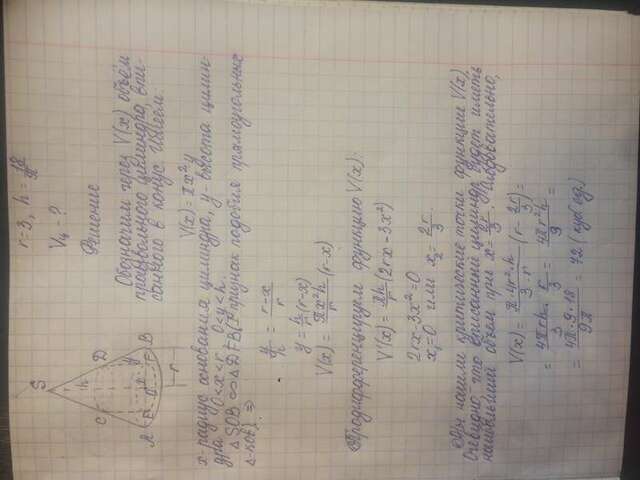 r=3, h=18/π
V4 - ?
Решение
S
h
C
D
x
y
A
E
O
F
B
r
Обозначим через V(x) объём
произвольного цилиндра, впи-
санного в конус. Имеем:
V(x) = πx²y
x-радиус основания цилиндра, y-высота цилин-
дра 0<x<r, 0<y<h.
△SOB ∾ △DFB (I признак подобия прямоугольных
△-ков) ⇒
y/h = (r-x)/r
y = h/r (r-x)
V(x) = πx²h/r (r-x)
Продифференцируем функцию V(x):
V'(x) = πh/r (2rx - 3x²)
2rx - 3x² = 0
x₁=0 или x₂ = 2r/3.
Мы нашли критические точки функции V(x).
Очевидно, что вписанный цилиндр будет иметь
наибольший объем при x = 2r/3. Следовательно,
V(x) = π·4r²·h/3·r (r - 2r/3) =
= 4πrh/3 · r/3 = 4πr²h/9 =
= 4π·9·18/9π = 72 (куб ед.)